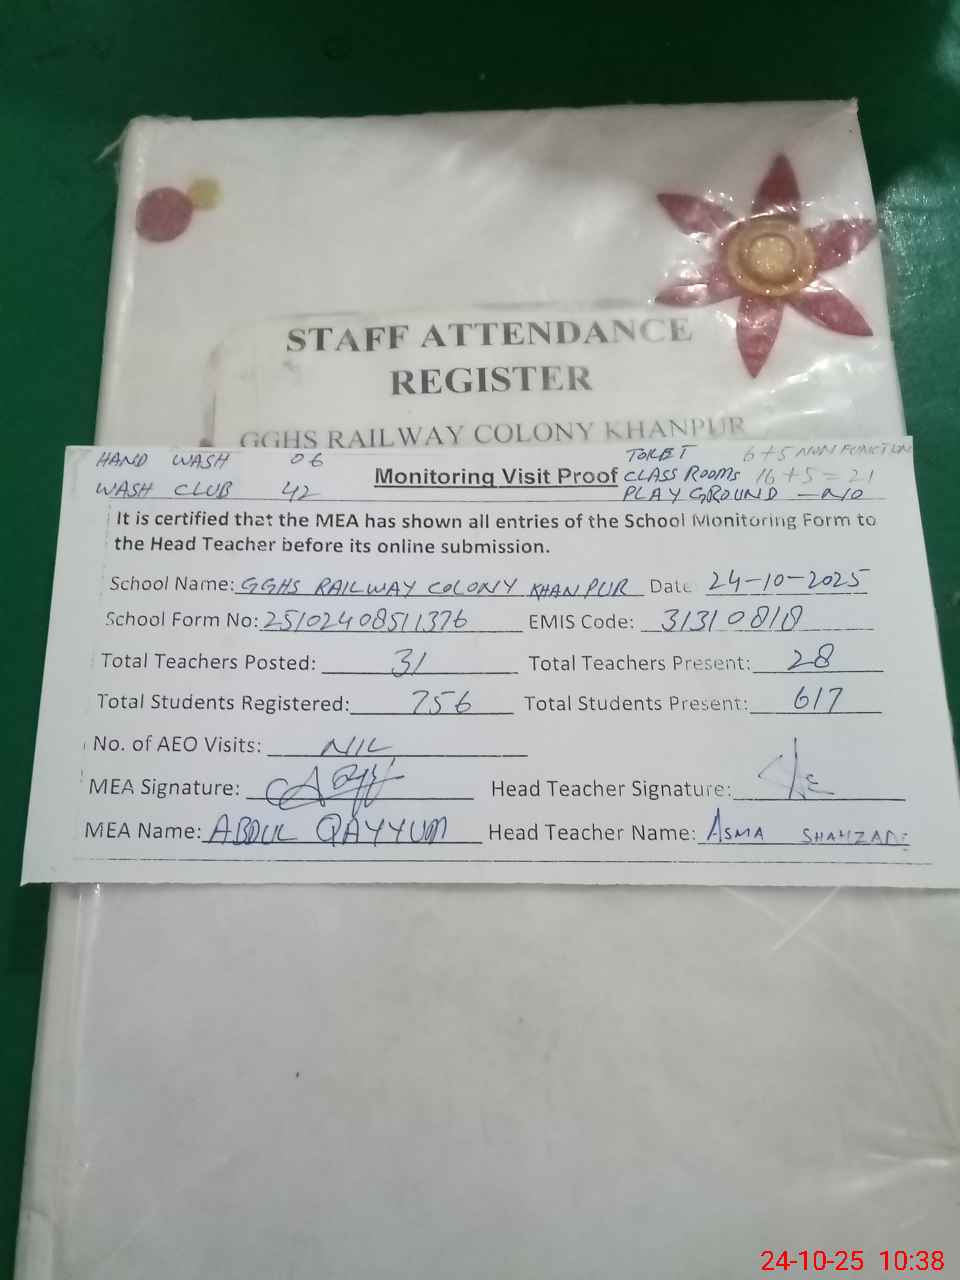 STAFF ATTENDANCE
REGISTER
GGHS RAILWAY COLONY KHANPUR
HAND WASH 06
WASH CLUB 42
Monitoring Visit Proof
TOILET 6+5 NON FUNCTION
CLASS ROOMS 16+5=21
PLAY GROUND - NO
It is certified that the MEA has shown all entries of the School Monitoring Form to
the Head Teacher before its online submission.
School Name: GGHS RAILWAY COLONY KHANPUR Date 24-10-2025
School Form No: 25102408511376 EMIS Code: 31310818
Total Teachers Posted: 31 Total Teachers Present: 28
Total Students Registered: 756 Total Students Present: 617
No. of AEO Visits: NIL
MEA Signature: Head Teacher Signature:
MEA Name: ABDUL QAYYUM Head Teacher Name: ASMA SHAHZADI
24-10-25 10:38